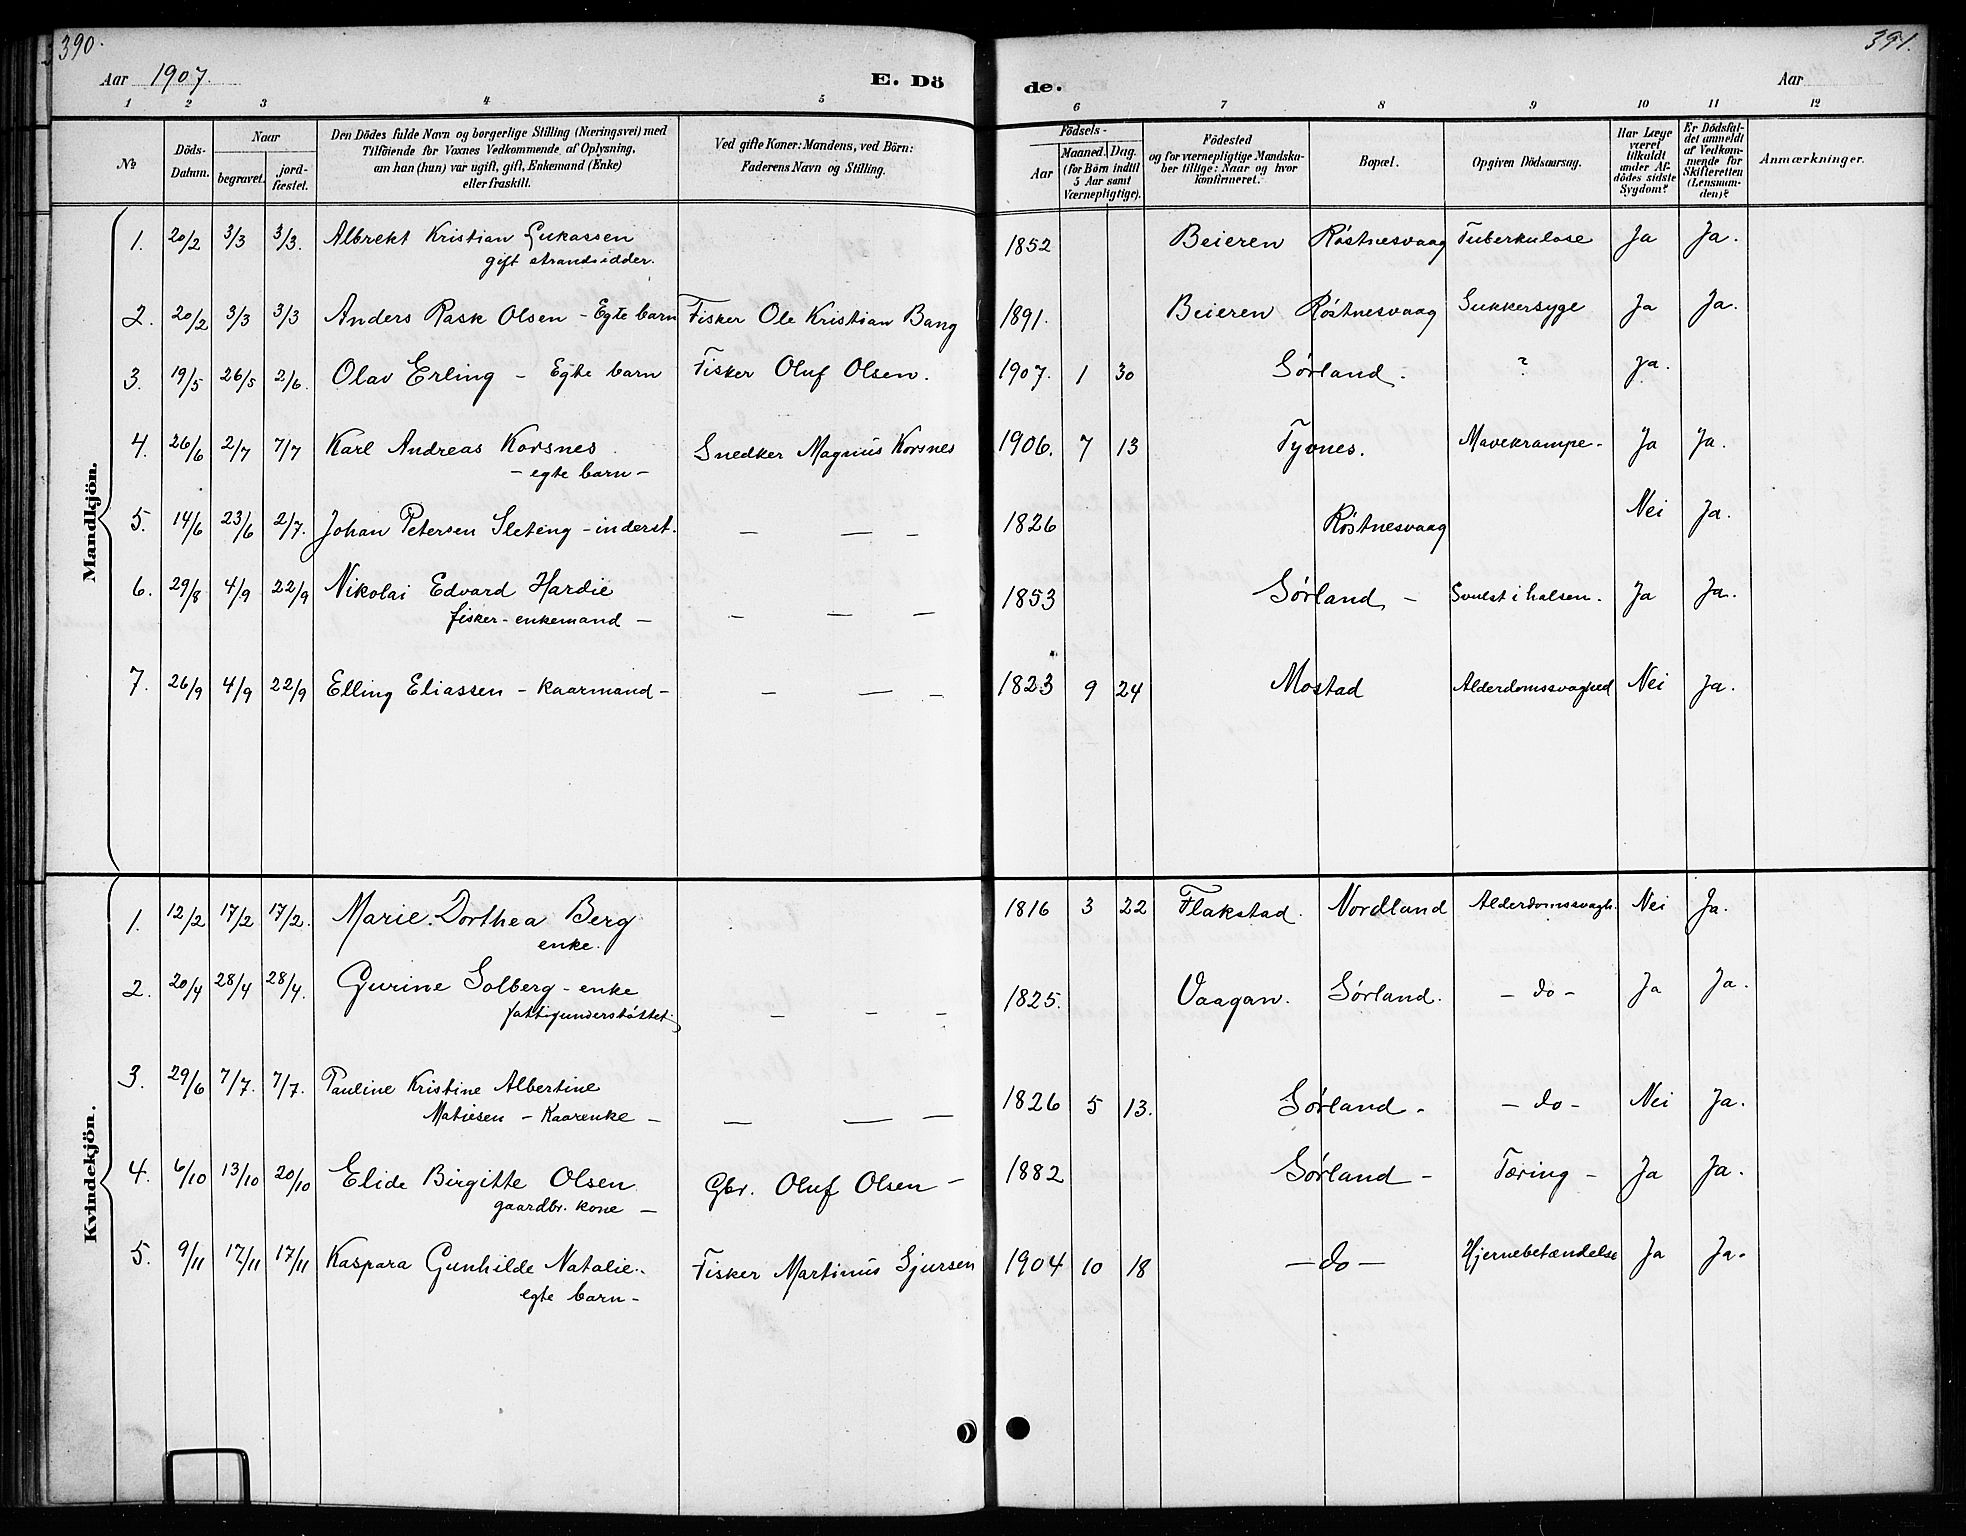 390.
391.
Aar 1907.
E. Dö
de.
Aar
1 2 3 4 5 6 7 8 9 10 11 12
No
Döds-Datum.
Naar
begravet.
jord-fæstet.
Den Dödes fulde Navn og borgerlige Stilling (Næringsvei) med
Tilföiende for Voxnes Vedkommende af Oplysning,
om han (hun) var ugift, gift, Enkemand (Enke)
eller fraskilt.
Ved gifte Koner: Mandens, ved Börn:
Faderens Navn og Stilling.
Födsels-
Aar
Maaned. Dag.
(for Börn indtil
5 Aar samt
Værnepligtige).
Födested
og for værnepligtige Mandska-
ber tillige: Naar og hvor
konfirmeret.
Bopæl.
Opgiven Dödsaarsag.
Har Læge
været
tilkaldt
under Af-
dödes sidste
Sygdom?
Er Dödsfal-
det anmeldt
af Vedkom-
mende for
Skifteretten
(Lensman-
den)?
Anmærkninger.
Mandkjön.
1. 20/2 3/3 3/3. Albrekt Kristian Lukassen 1852 Beieren Røstnesvaag Tuberkulose Ja Ja.
gift strandsidder.
2. 20/2 3/3 3/3 Anders Rask Olsen - Egte barn Fisker Ole Kristian Bang 1891. Beieren Røstnesvaag Sukkersyge Ja Ja.
3. 19/5 26/5 2/6. Olav Erling - Egte barn Fisker Oluf Olsen. 1907. 1 30 Sørland. ? Ja.
4. 26/6 2/7 7/7 Karl Andreas Korsnes Snedker Magnus Korsnes 1906. 7 13 Tyvnes. Mavekrampe - Ja Ja.
- egte barn -
5. 14/6 23/6 2/7. Johan Petersen Sleteng - inderst. — — — 1826 Røstnesvaag Nei Ja.
6. 29/8 4/9 22/9 Nikolai Edvard Hardie 1853 Sørland - Svulst i halsen. Ja Ja.
fisker - enkemand - — — —
7. 26/9 4/9 22/9 Elling Eliassen - kaarmand - — — — 1823 9 24 Mostad Alderdomssvaghed Nei Ja.
Kvindekjön.
1. 12/2 17/2 17/2. Marie Dorthea Berg 1816 3 22 Flakstad. Nordland Alderdomssvagh. Nei Ja.
enke.
2. 20/4 28/4 28/4. Gurine Solberg - enke 1825. Vaagan. Sørland. - do - Ja Ja.
fattigunderstøttet. — — —
3. 29/6 7/7. 7/7. Pauline Kristine Albertine 1826 5 13. Sørland - - do - Nei Ja.
Matiesen - Kaarenke - — — —
4. 6/10 13/10 20/10 Elide Birgitte Olsen Gbr. Oluf Olsen - 1882 Sørland - Tæring - Ja Ja.
gaardbr. kone -
5. 9/11 17/11 17/11 Kaspara Gunhilde Natalie. Fisker Martinus Sjursen 1904 10 18 - do - Hjernebetændelse Ja Ja.
egte barn -